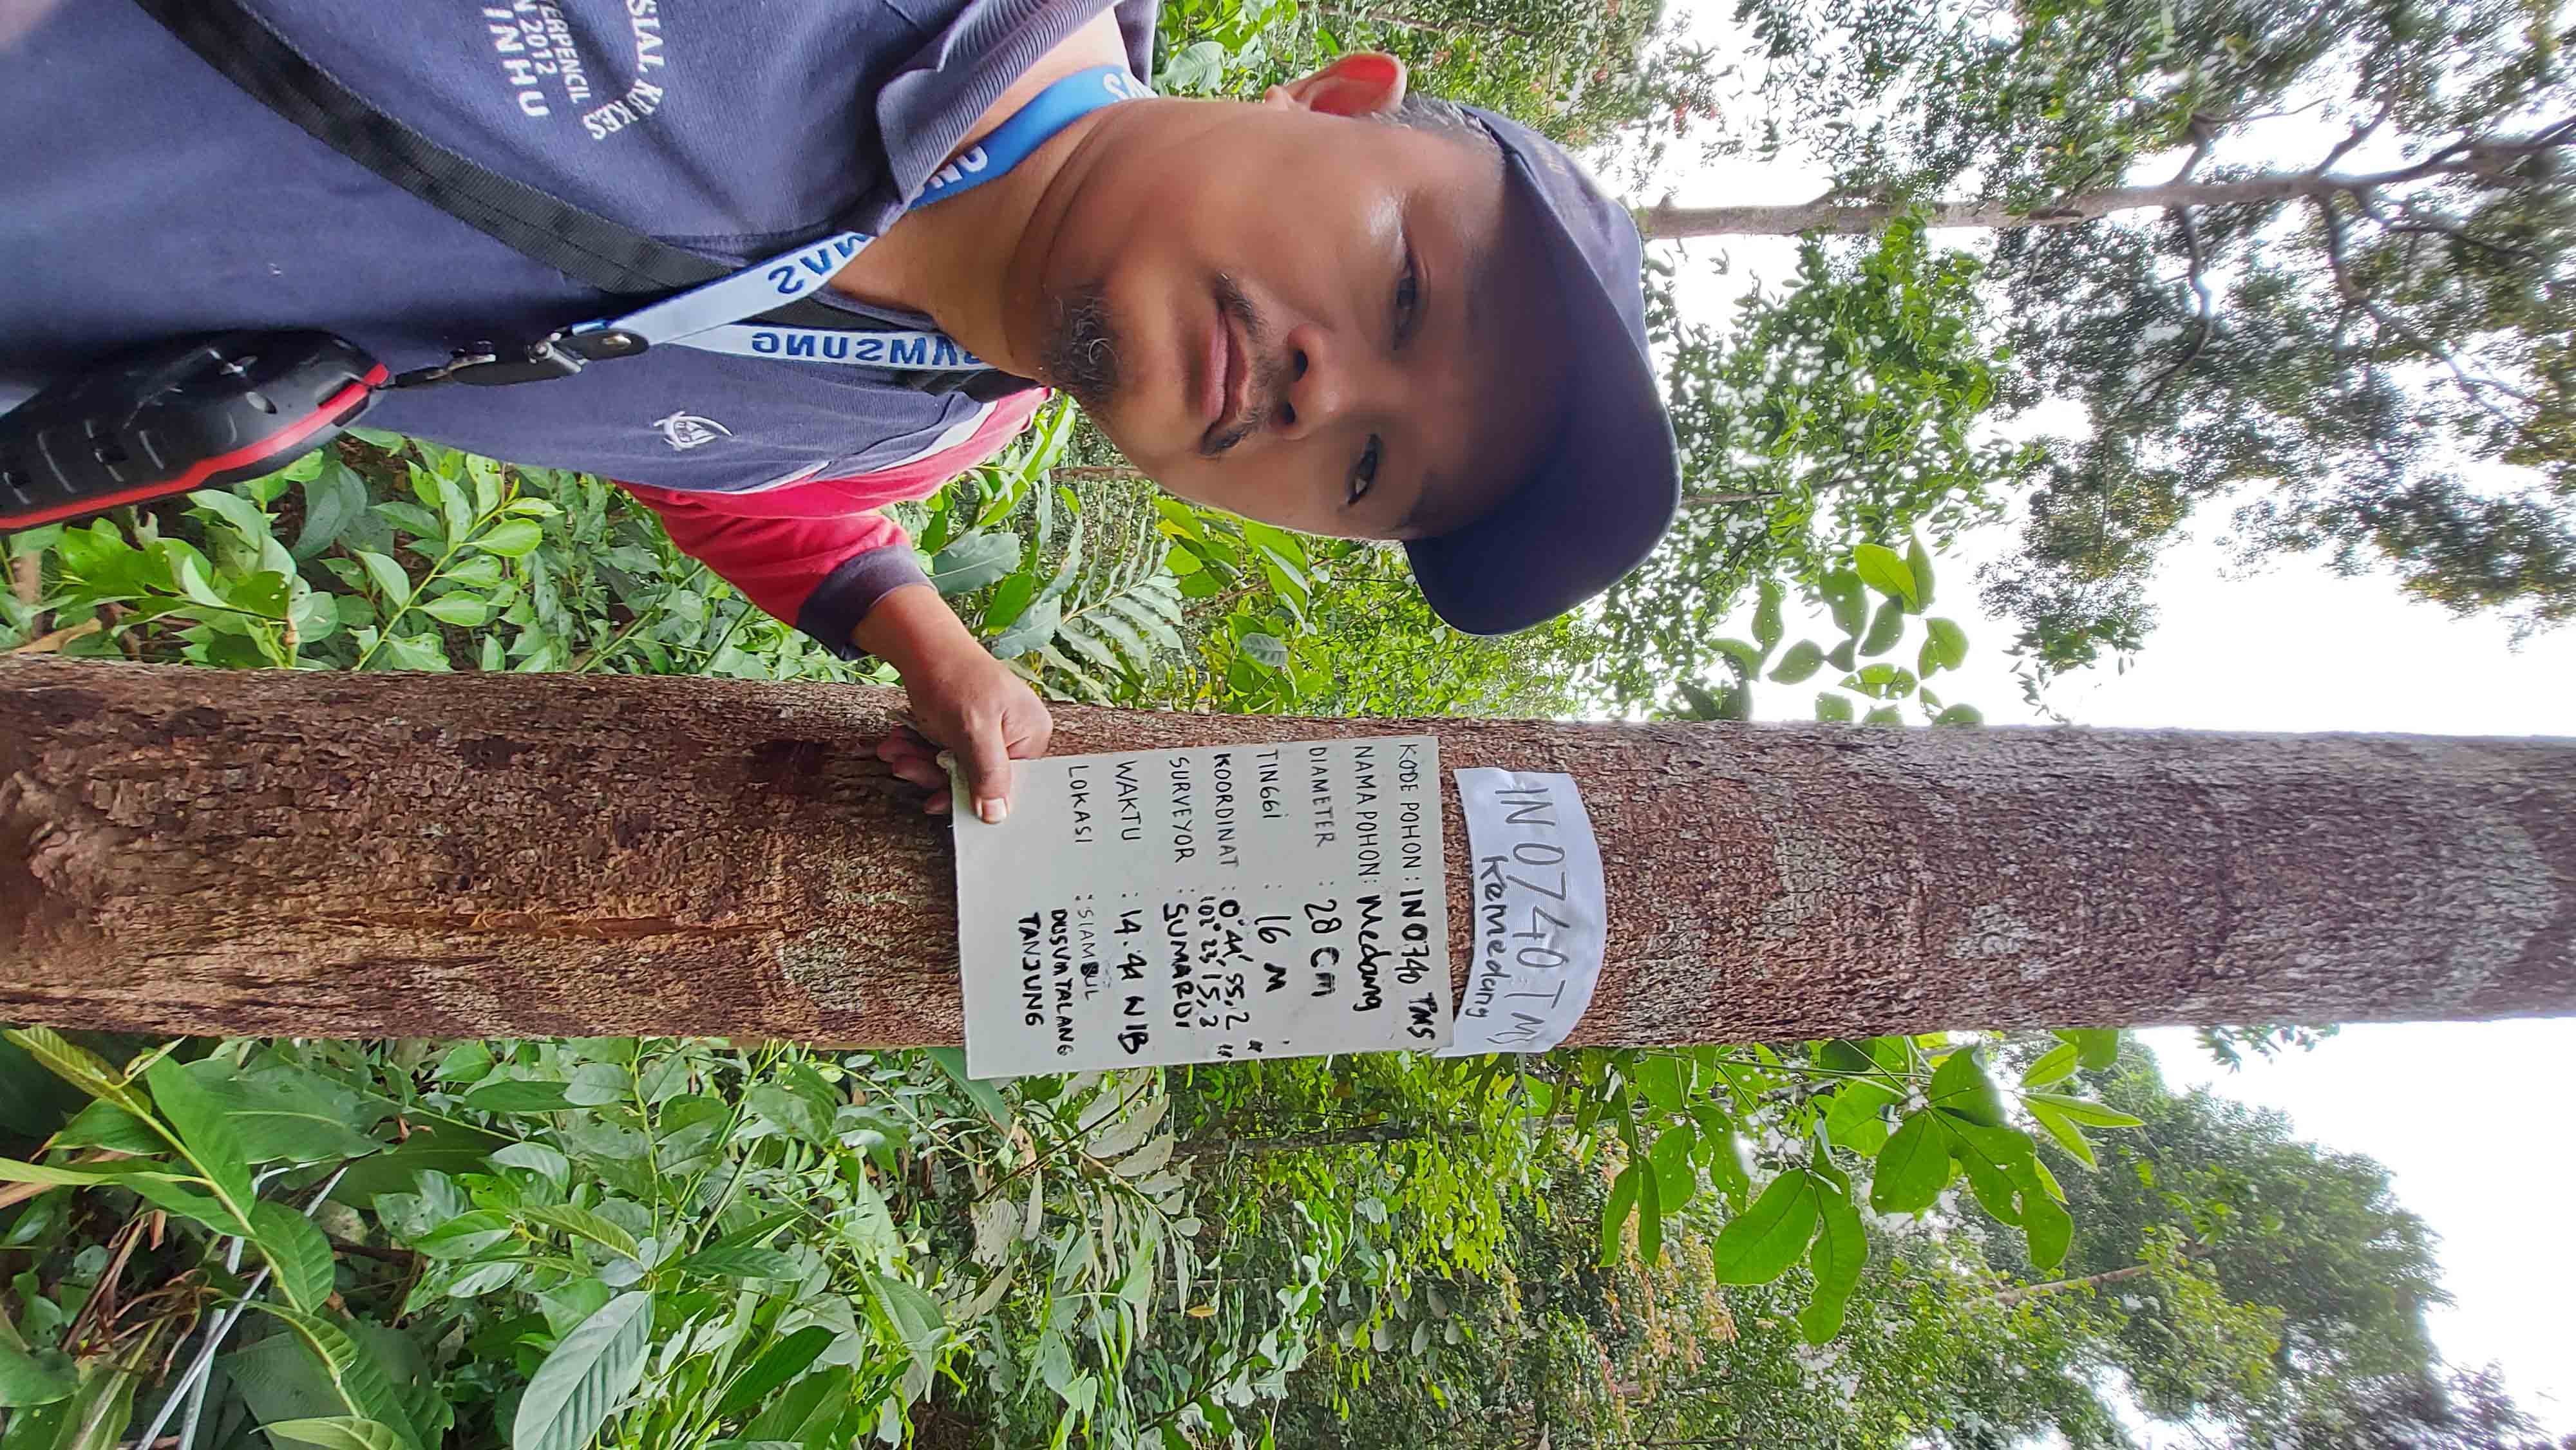 IN0740 TMS
Kemedang
KODE POHON : IN0740 TMS
NAMA POHON : Medang
DIAMETER : 28 Cm
TINGGI : 16 M
KOORDINAT : 0° 44', 55,2 "
102° 23' 15,3 "
SURVEYOR : SUMARDI
WAKTU : 14.44 WIB
LOKASI : SIAMBUL
DUSUN TALANG
TANJUNG
SAMSUNG
SIAL KEKES
TERPENCIL
N 2012
INHU